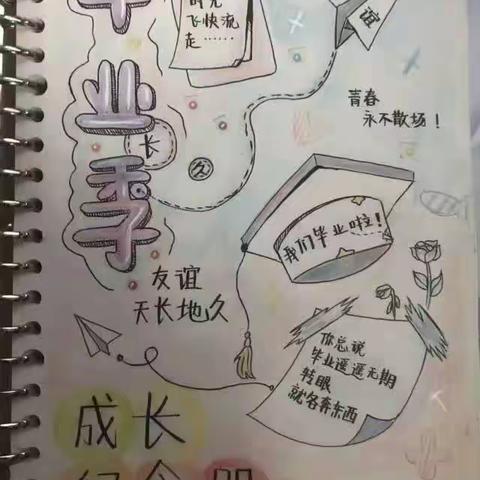 时光
飞快流
走……
谊
毕业季
长
久
青春
永不散场！
我们毕业啦！
友谊
天长地久
你总说
毕业遥遥无期
转眼
就各奔东西
成长
纪念册